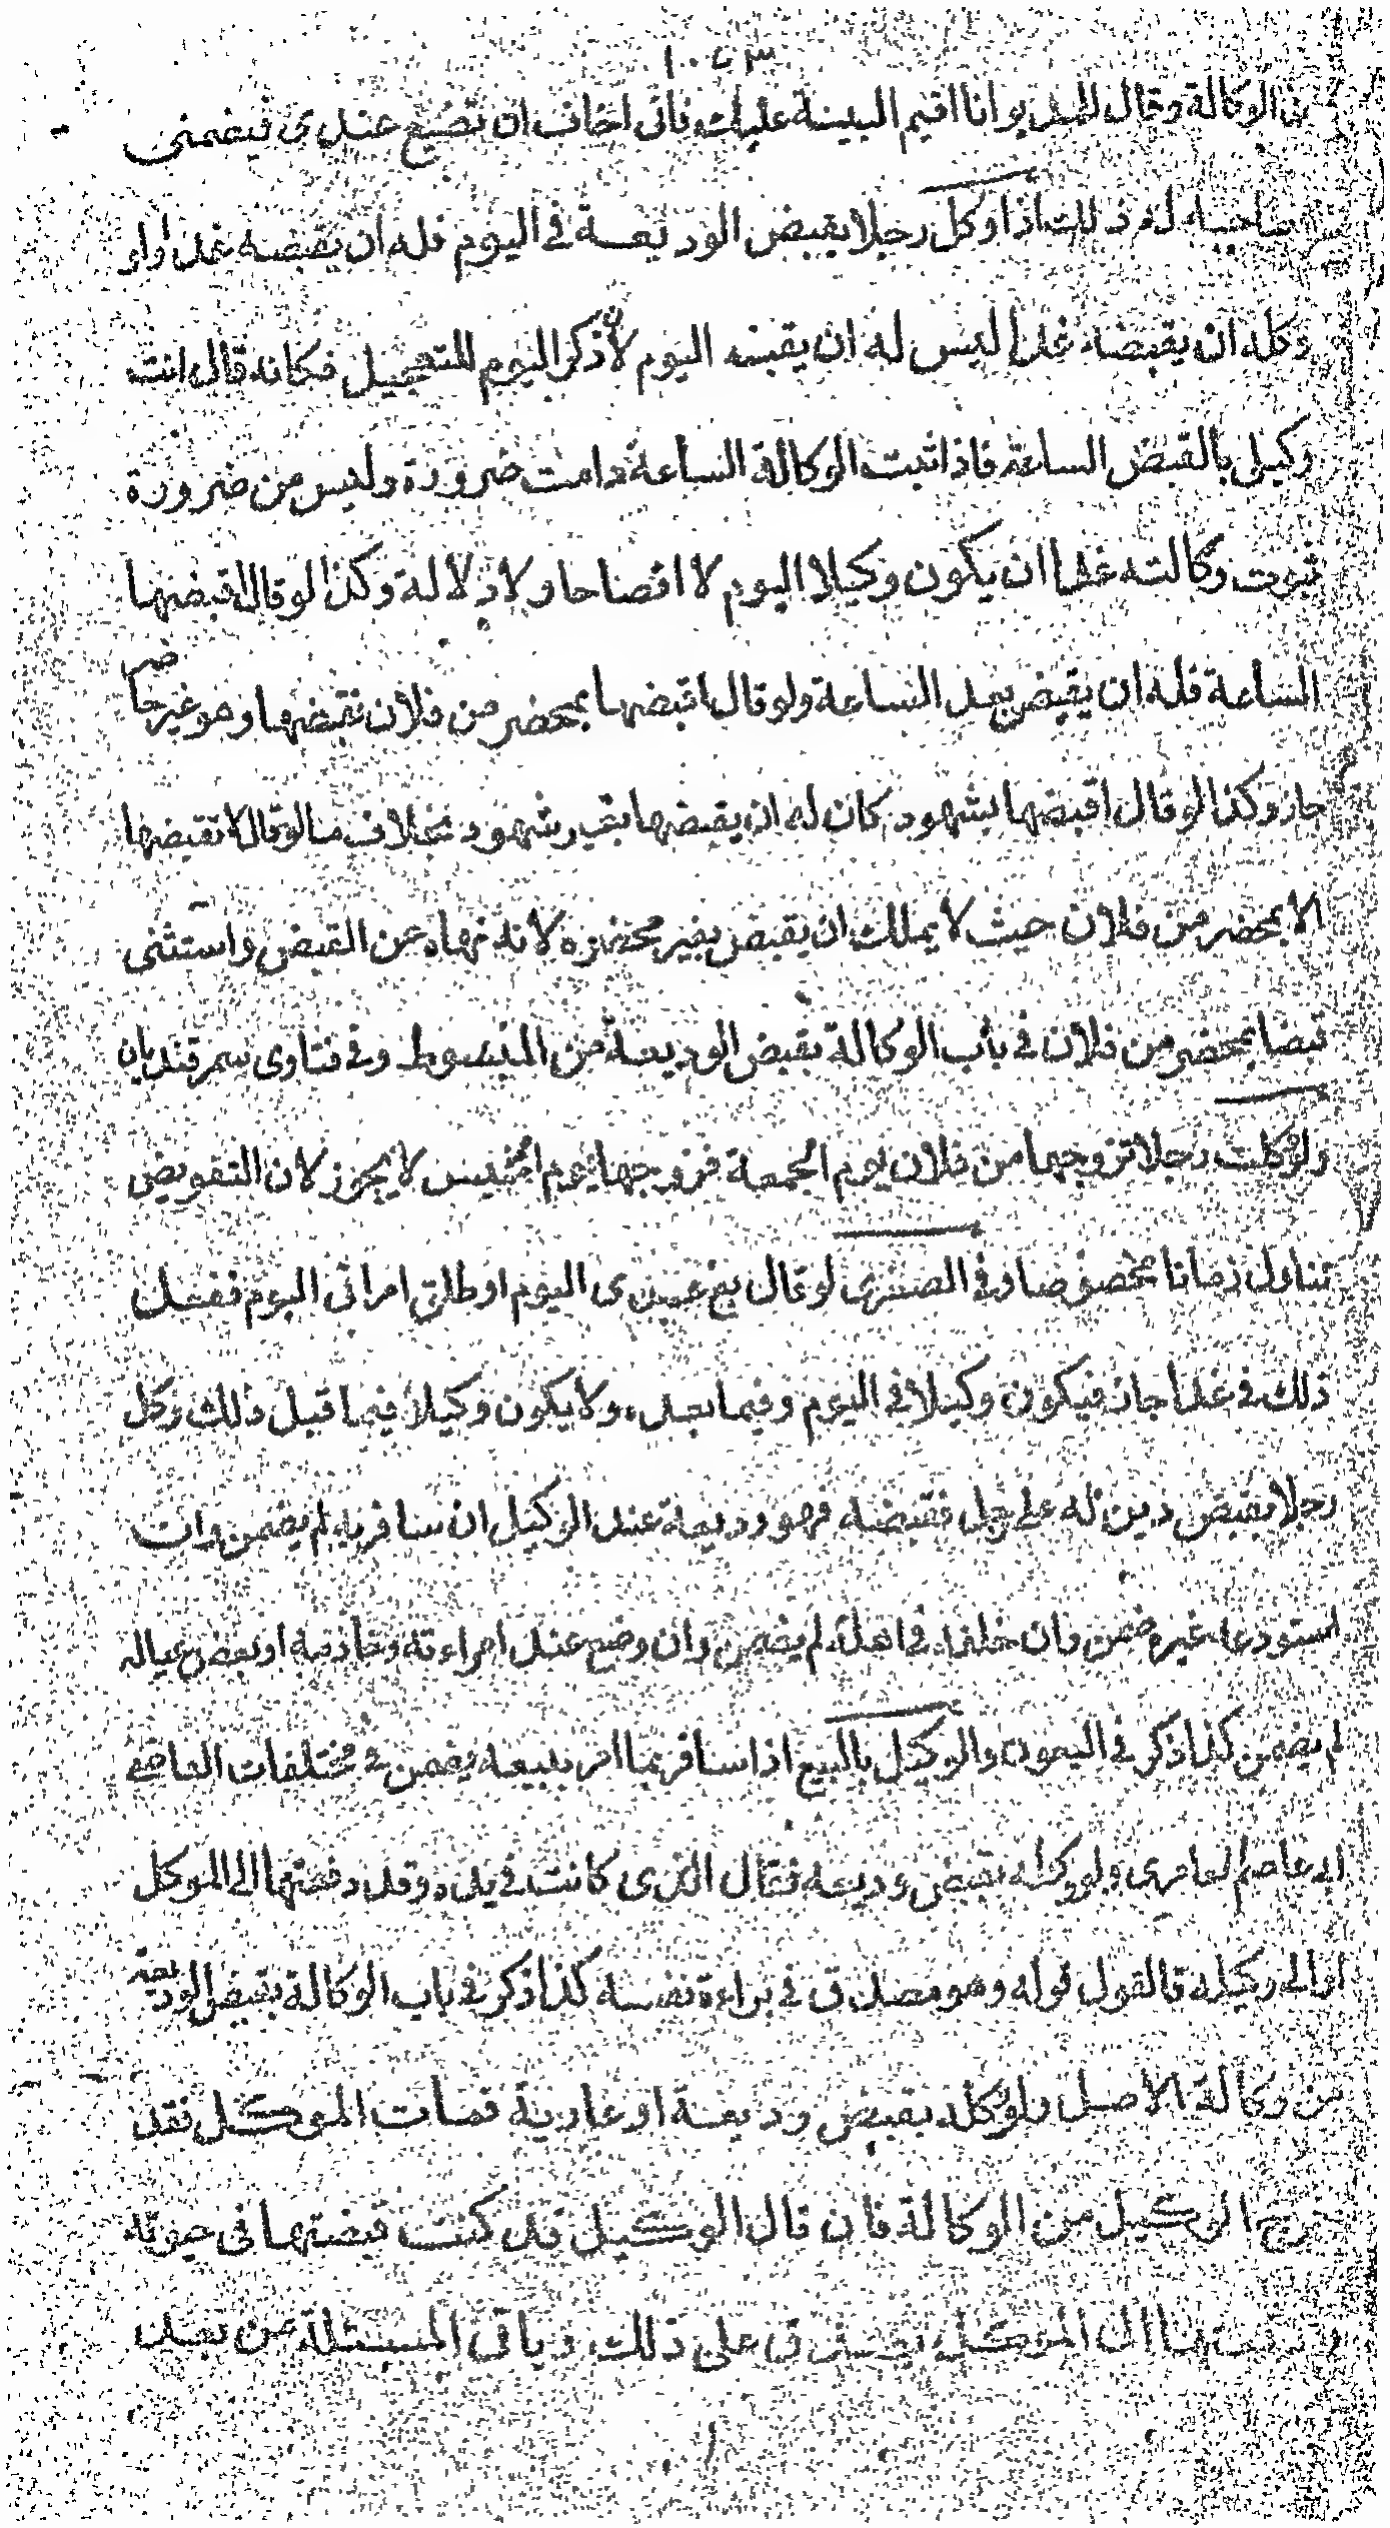 من الوكالة وقال للمديون انا اقيم البينة عليك فاني اخاف ان تضيع عندي فيضمنني
صاحبها له ذلك اذا وكل رجلا بقبض الوديعة في اليوم فله ان يقبضه غدا ولو
وكله ان يقبضه غدا ليس له ان يقبضه اليوم لان ذكر اليوم للتعجيل فكانه قال انت
وكيل بالقبض الساعة فاذا ثبت الوكالة الساعة دامت ضرورة وليس من ضرورة
ثبوت وكالته غدا ان يكون وكيلا اليوم لا افصاحا ولا دلالة وكذا لو قال اقبضها
الساعة فله ان يقبض بعد الساعة ولو قال اقبضها بمحضر من فلان فقبضها وهو غير حاضر
جاز وكذا لو قال اقبضها بشهود كان له ان يقبضها بغير شهود بخلاف ما لو قال لا تقبضها
الا بمحضر من فلان حيث لا يملك ان يقبض بغير محضره لانه نهاه عن القبض واستثنى
قبضا بمحضر من فلان في باب الوكالة بقبض الوديعة من المبسوط وفي فتاوى سمرقنديان
ولو وكلت رجلا تزوجها من فلان يوم الجمعة فزوجها يوم الخميس لا يجوز لان التفويض
تناول زمانا مخصوصا وفي الصغرى لو قال بع عبدي اليوم او طلق امراتي اليوم ففعل
ذلك في غدا جاز فيكون وكيلا في اليوم وفيما بعده ولا يكون وكيلا فيما قبل ذلك وكل
رجلا بقبض دين له على رجل فقبضه فهو وديعة عند الوكيل ان سافر به لم يضمن وان
استودعه غيره ضمن وان خلفه في اهله لم يضمن وان وضع عند امراءته وخادمه او بعض عياله
لم يضمن كذا ذكر في العيون والوكيل بالبيع اذا سافر بما امر ببيعه يضمن في مختلفات القاضي
ابي عاصم العامري ولو وكله بقبض وديعه فقال الذي كانت في يده وقد دفعتها الى الموكل
او الى وكيله فالقول قوله وهو مصدق في براءة نفسه كذا ذكر في باب الوكالة بقبض الوديعة
من وكالة الاصل ولو وكله بقبض وديعة او عارية فمات الموكل فقد
خرج الوكيل من الوكالة فان قال الوكيل قد كنت قبضتها في حيوته
الموكل يصدق على ذلك وباقي المسئلة من بعد